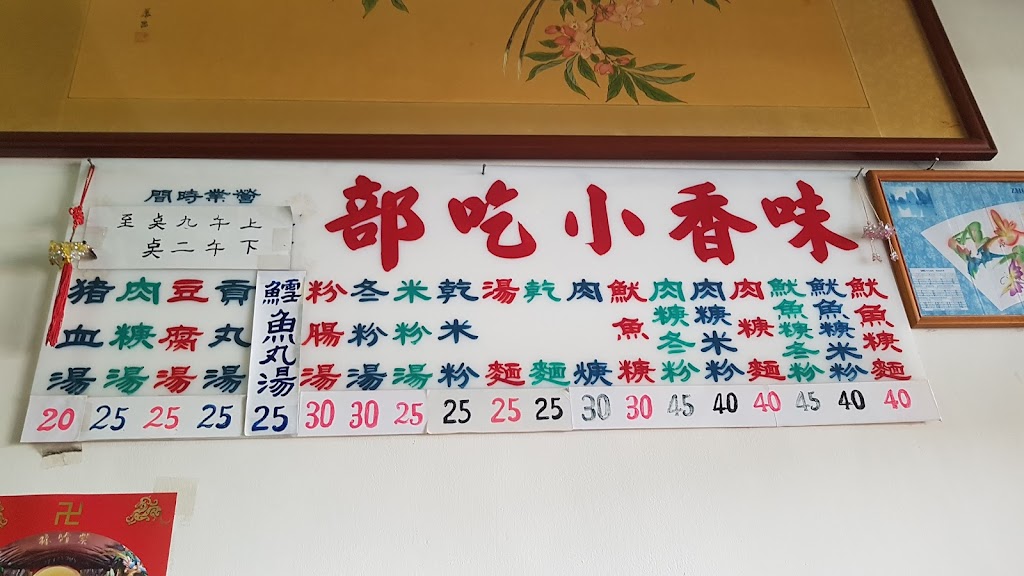 味香小吃部
營業時間
上午九奌至
下午二奌
魷魚粳麵 40
魷魚粳米粉 40
魷魚粳冬粉 45
肉粳麵 40
肉粳米粉 40
肉粳冬粉 45
魷魚粳 30
肉焿 30
乾麵 25
湯麵 25
乾米粉 25
米粉湯 25
冬粉湯 30
粉腸湯 30
鱈魚丸湯 25
貢丸湯 25
豆腐湯 25
肉粳湯 25
豬血湯 20
卍